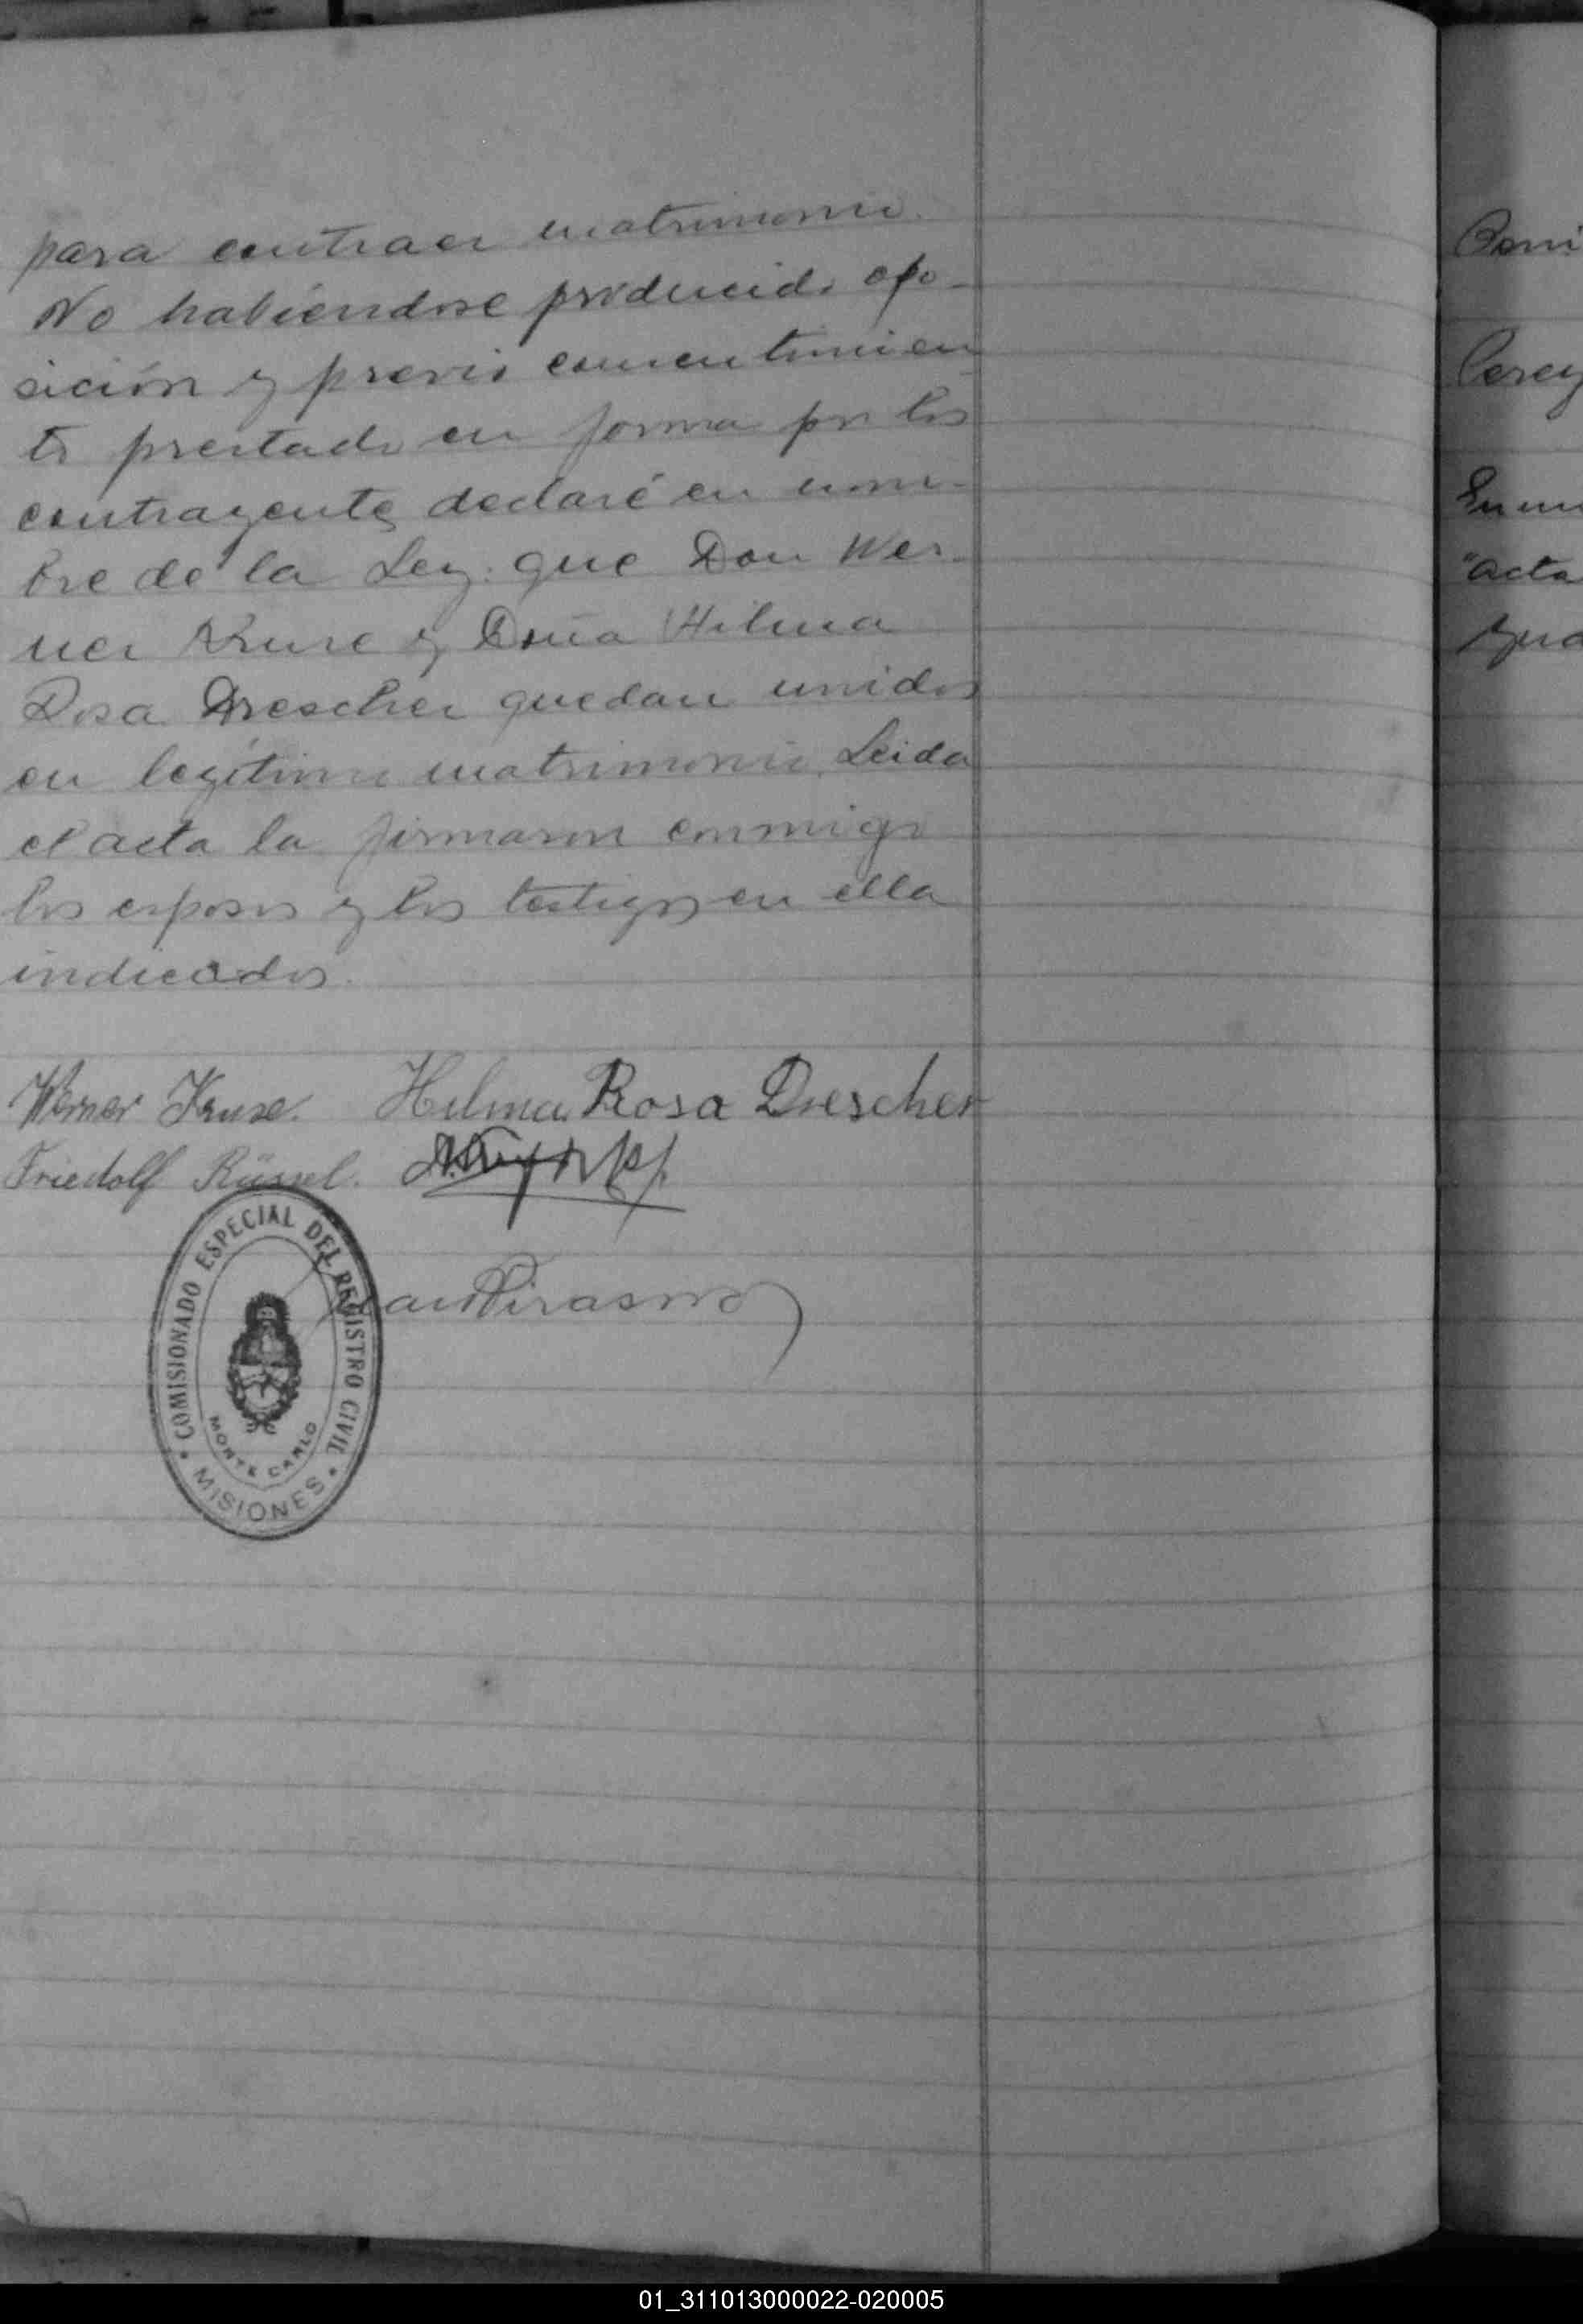 para contraer matrimonio.
No habiéndose producido opo-
sición y previo consentimien
to prestado en forma por los
contrayentes declaré en nom-
bre de la Ley: que Don Wer-
ner Kruse y Doña Hilma
Rosa Drescher quedan unidos
en legítimo matrimonio. Leida
el acta la firmaron conmigo
los esposos y los testigos en ella
indicados.
Werner Kruse. Hilma Rosa Drescher
Friedolf Rüssel.
COMISIONADO ESPECIAL DEL REGISTRO CIVIL
MONTE CARLO
MISIONES
Perey
"acta
01_311013000022-020005